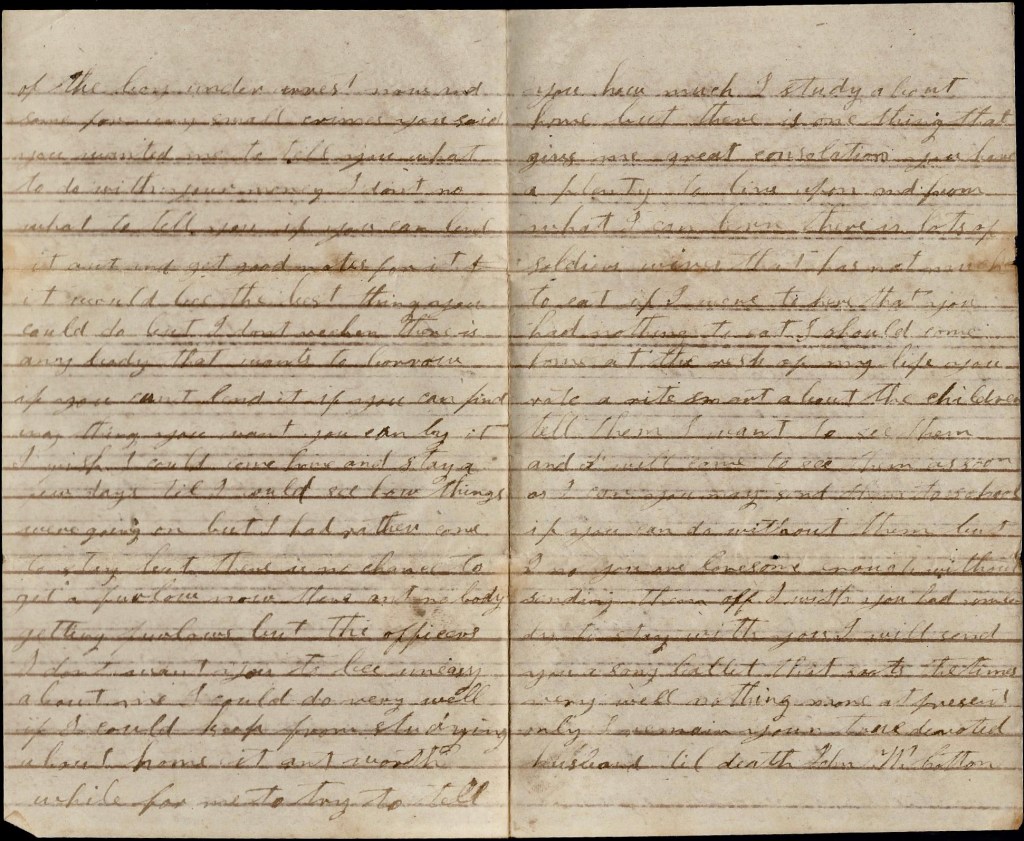 of the boys under arrest now and
some for very small crimes you said
you wanted me to tell you what
to do with your money I dont no
what to tell you if you can lend
it out and get good notes for it
it would bee the best thing you
could do but I dont recken there is
any body that wants to borrow
if you cant lend it if you can find
any thing you want you can by it
I wish I could come home and stay a
few days til I could see how things
were going on but I had rather come
to stay but there is no chance to
get a furlow now there ant no body
getting furlows but the officers
I dont want you to bee uneasy
about me I could do very well
if I could keep from studying
about home it ant worth
while for me to try to tell
you how much I study about
home but there is one thing that
gives me great consolation you have
a plenty to live upon and from
what I can hear there is lots of
soldiers wives that has not much
to eat if I were to hear that you
had nothing to eat I should come
home at the risk of my life you
rote a rite smart about the children
tell them I want to see them
and I will come to see them as soon
as I can you may send them to school
if you can do without them but
I no you are lonesome enough without
sending them off I wish you had some
to stay with you I will send
you a song ballet that suits the times
very well nothing more at present
only I remain your true devoted
husband til death John W Cotton